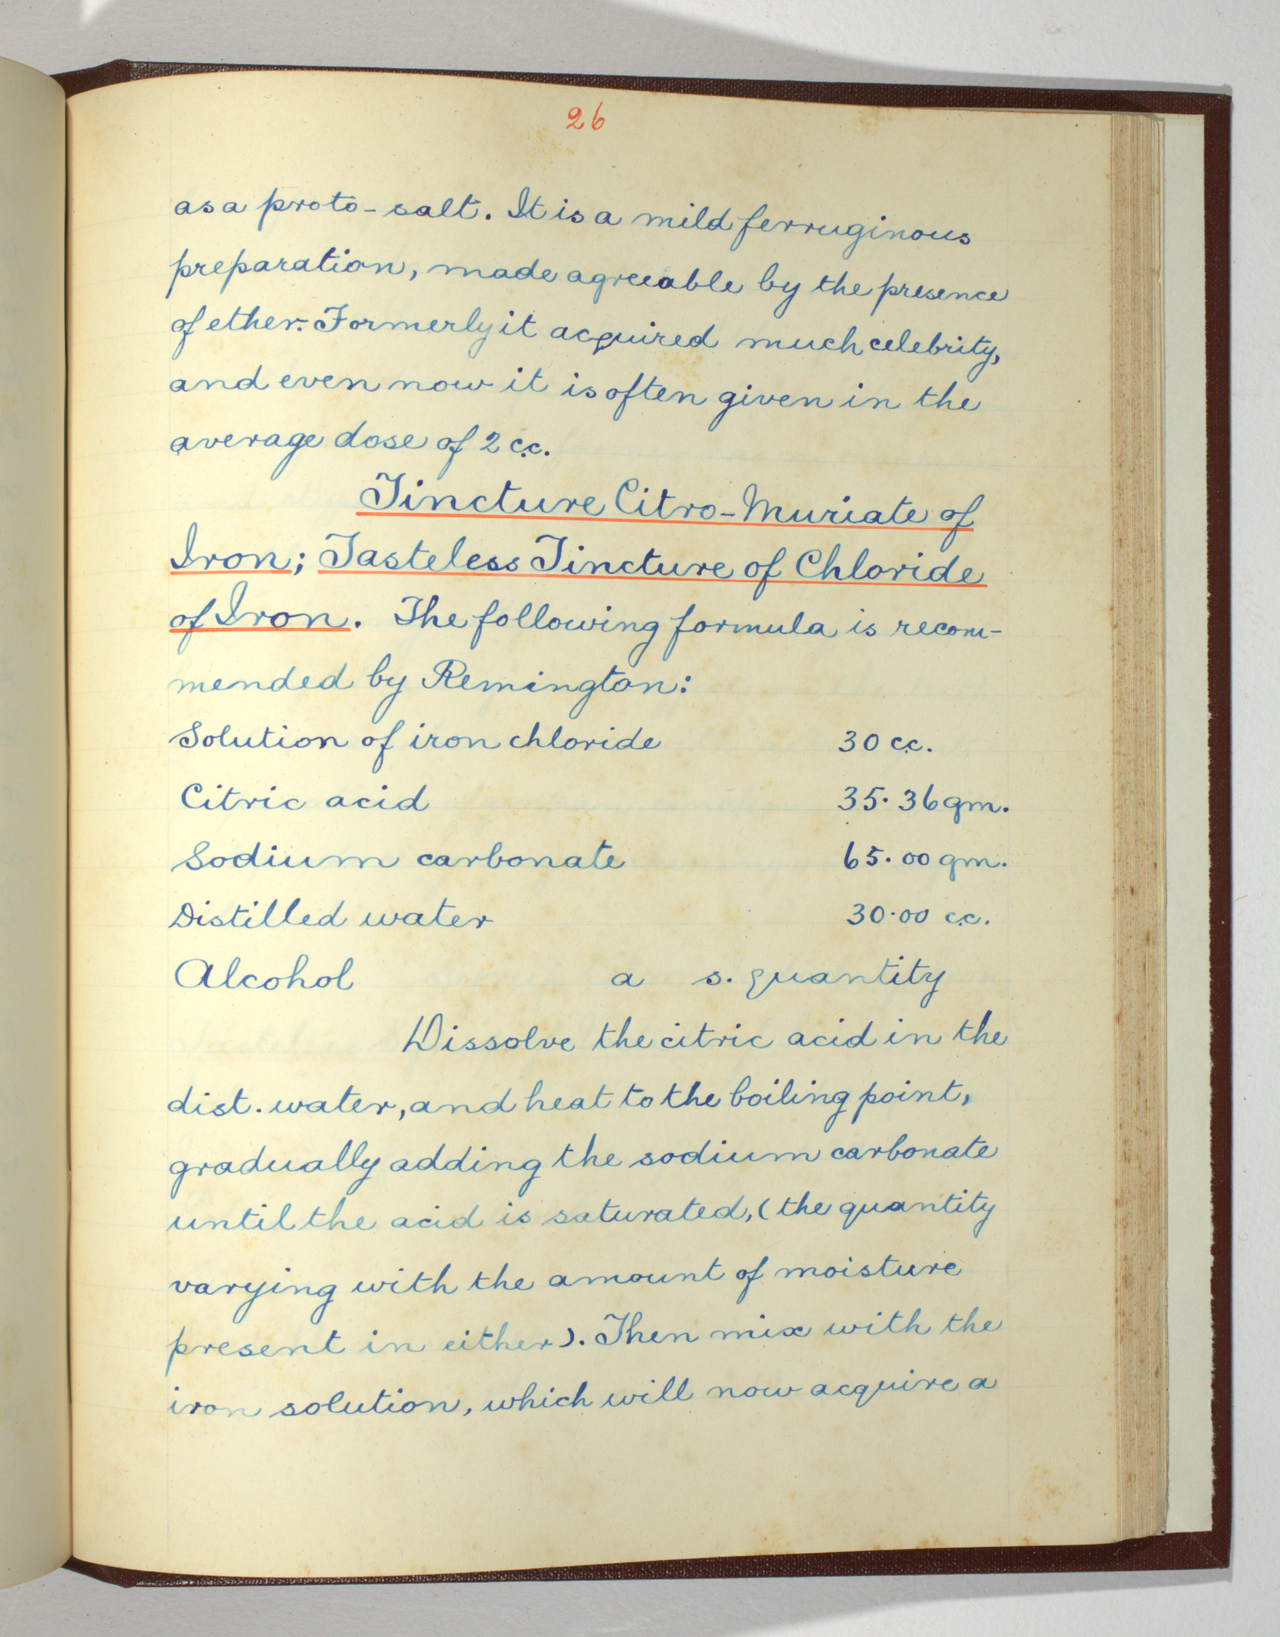 26
as a proto-salt. It is a mild ferruginous
preparation, made agreeable by the presence
of ether. Formerly it acquired much celebrity,
and even now it is often given in the
average dose of 2 c.c.
Tincture Citro-Muriate of
Iron; Tasteless Tincture of Chloride
of Iron. The following formula is recom-
mended by Remington:
Solution of iron chloride 30 c.c.
Citric acid 35.36 gm.
Sodium carbonate 65.00 gm.
Distilled water 30.00 c.c.
Alcohol a s. quantity
Dissolve the citric acid in the
dist. water, and heat to the boiling point,
gradually adding the sodium carbonate
until the acid is saturated, (the quantity
varying with the amount of moisture
present in either). Then mix with the
iron solution, which will now acquire a